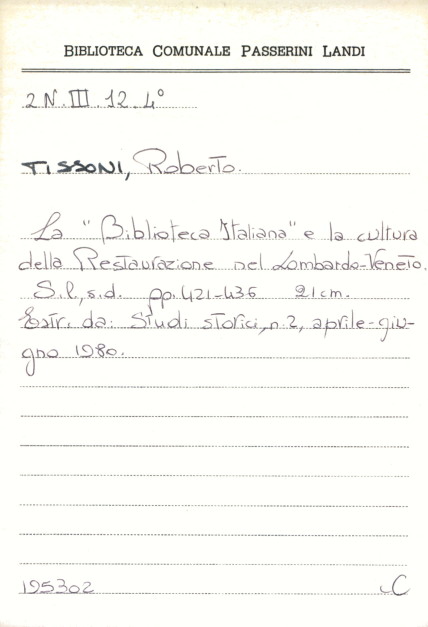 BIBLIOTECA COMUNALE PASSERINI LANDI
2 N. III. 12. 4°
TISSONI, Roberto.
La "Biblioteca Italiana" e la cultura
della Restaurazione nel Lombardo-Veneto.
S.l., s.d. pp. 421-436 21 cm.
Estr. da: Studi storici, n. 2, aprile-giu-
gno 1980.
195302 C